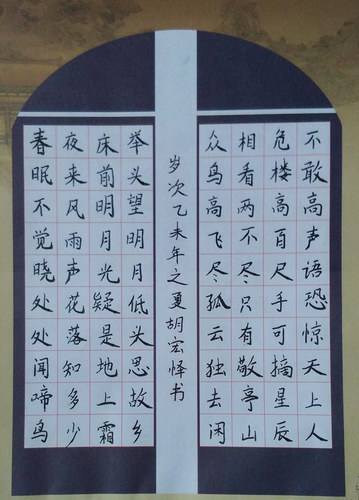 春眠不觉晓处处闻啼鸟
夜来风雨声花落知多少
床前明月光疑是地上霜
举头望明月低头思故乡
岁次乙未年之夏胡宏怿书
众鸟高飞尽孤云独去闲
相看两不尽只有敬亭山
危楼高百尺手可摘星辰
不敢高声语恐惊天上人